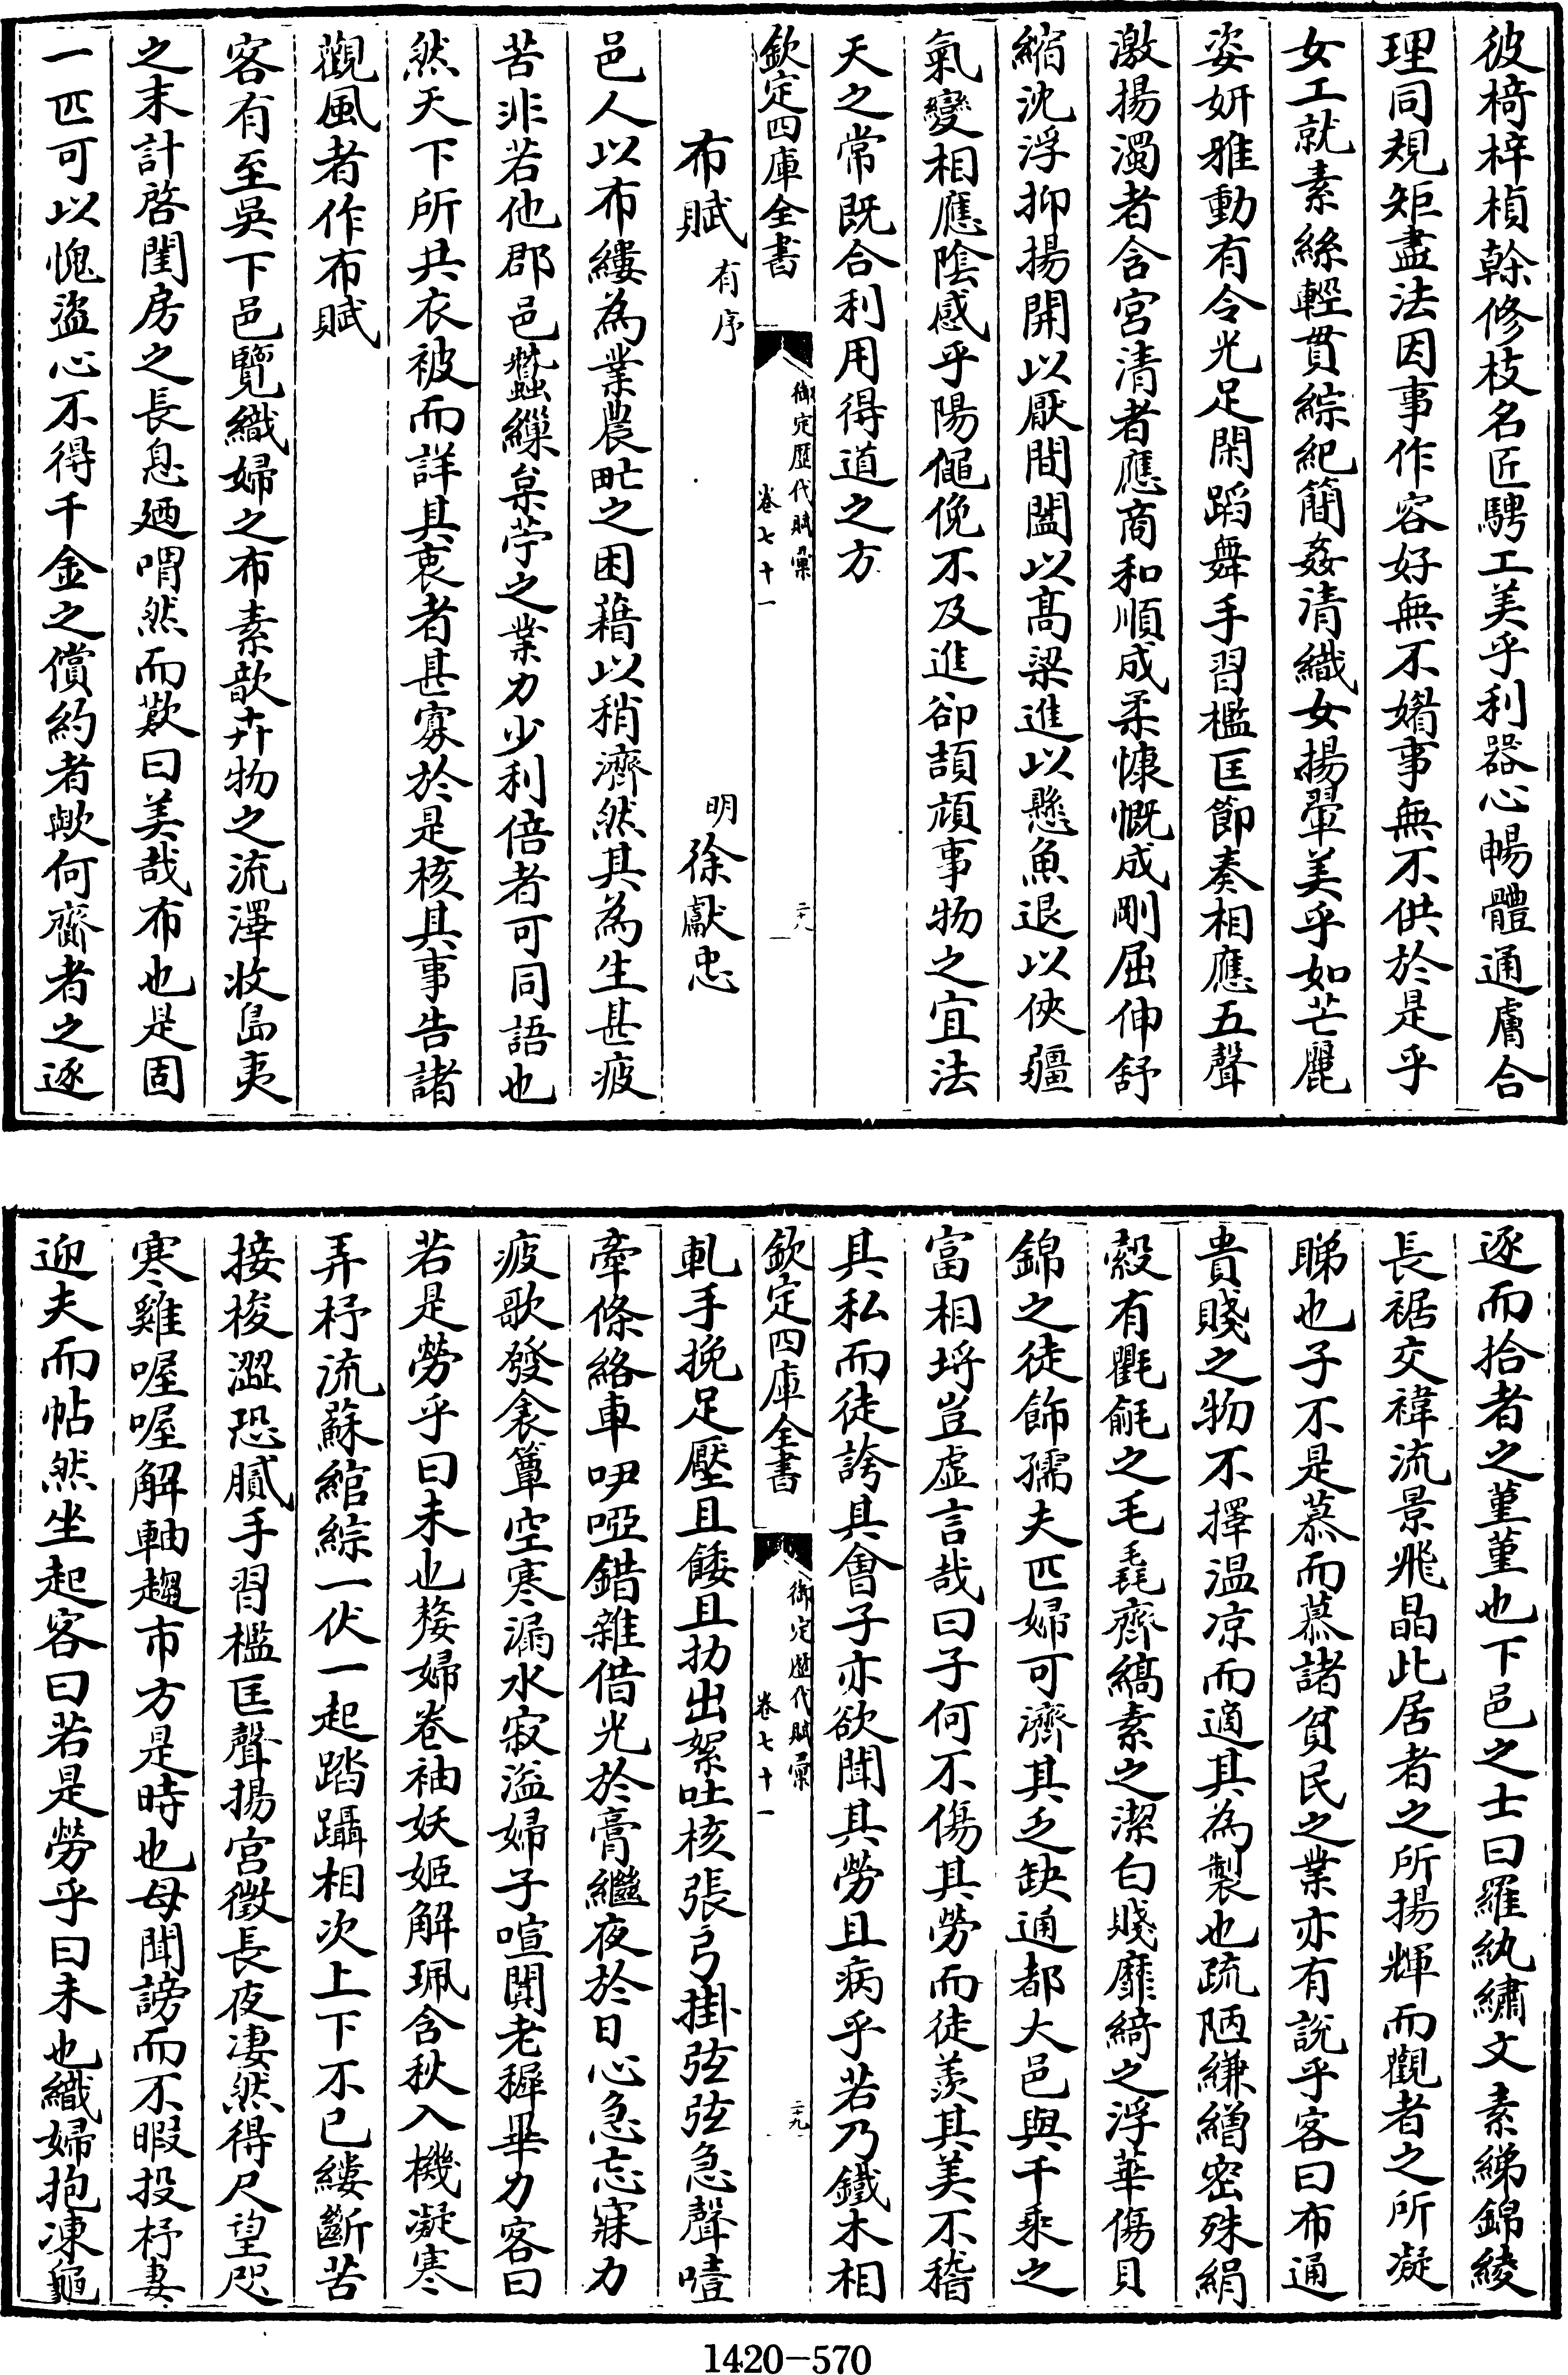 彼椅梓楨榦修枝名匠騁工美乎利器心暢體通膚合
理同規矩盡法因事作容好無不媘事無不供於是乎
女工就素絲輕貫綜紀簡姦清織女揚翬美乎如芒麗
姿妍雅動有令光足閑蹈舞手習檻匡節奏相應五聲
激揚濁者含宮清者應商和順成柔慷慨成剛屈伸舒
縮沈浮抑揚開以厭間闔以髙梁進以懸魚退以俠疆
氣變相應陰感乎陽僶俛不及進卻頡頏事物之宜法
天之常既合利用得道之方
欽定四庫全書 御定歷代賦彙 卷七十一 二十八
布賦 有序 明 徐獻忠
邑人以布縷為業農甿之困藉以稍濟然其為生甚疲
苦非若他郡邑蠶繅枲苧之業力少利倍者可同語也
然天下所共衣被而詳其衷者甚寡於是核其事告諸
觀風者作布賦
客有至吳下邑覽織婦之布素歆卉物之流澤收島夷
之末計啓閨房之長息廼喟然而歎曰美哉布也是固
一匹可以愧盜心不得千金之償約者歟何齎者之逐
逐而拾者之菫菫也下邑之士曰羅紈繡文素綈錦綾
長裾交褘流景飛晶此居者之所揚輝而觀者之所凝
睇也子不是慕而慕諸貧民之業亦有說乎客曰布通
貴賤之物不擇温凉而適其為製也疏陋縑繒密殊絹
縠有氍毹之毛毳齊縞素之潔白賤靡綺之浮華傷貝
錦之徒飾孺夫匹婦可濟其乏缺通都大邑與千乘之
富相埒豈虚言哉曰子何不傷其勞而徒羨其美不稽
其私而徒誇其會子亦欲聞其勞且病乎若乃鐵木相
欽定四庫全書 御定歷代賦彙 卷七十一 二十九
軋手挽足壓且餧且扐出絮吐核張弓掛弦弦急聲噎
牽條絡車咿啞錯雜借光於膏繼夜於日心急忘寐力
疲歌發衾簟空寒漏水寂溢婦子喧闐老穉畢力客曰
若是勞乎曰未也嫠婦卷袖妖姬解珮含秋入機凝寒
弄杼流蘇綰綜一伏一起踏躡相次上下不已縷斷苦
接梭澀恐膩手習檻匡聲揚宮徵長夜凄然得尺望咫
寒雞喔喔解軸趨市方是時也母聞謗而不暇投杼妻
迎夫而帖然坐起客曰若是勞乎曰未也織婦抱凍龜
1420-570